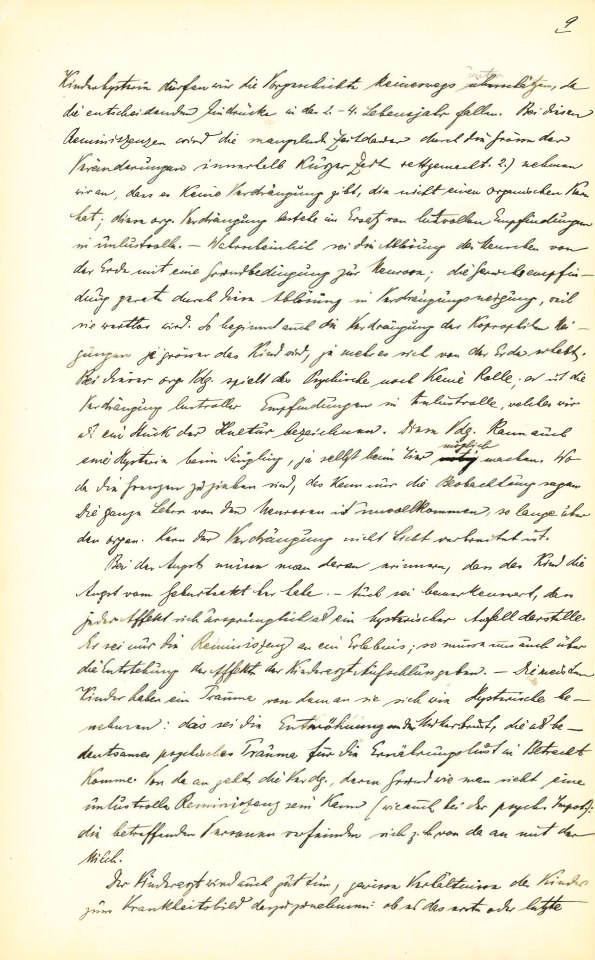 9
Kinderhysterie dürfen wir die Vorgeschichte keineswegs unterschätzen, da
die entscheidenden Eindrücke in das 2.-4. Lebensjahr fallen. Bei diesen
Reminiszenzen wird die mangelnde Zeitdauer durch die Grösse der
Veränderungen innerhalb kurzer Zeit wettgemacht. 2.) nehmen
wir an, dass es keine Verdrängung gibt, die nicht einen organischen Kern
hat; diese org. Verdrängung bestehe im Ersatz von lustvollen Empfindungen
in unlustvolle. — Wahrscheinlich sei die Ablösung des Menschen von
der Erde mit eine Grundbedingung zur Neurose; die Geruchsempfin-
dung gerate durch diese Ablösung in Verdrängungsneigung, weil
sie wertlos wird. So beginnt auch die Verdrängung der Koprophilen Nei-
gungen je grösser das Kind wird, je mehr es sich von der Erde erhebt.
Bei dieser org. Vdg. spielt das Psychische noch keine Rolle; es ist die
Verdrängung lustvoller Empfindungen in Unlustvolle, welches wir
als ein Stück der Kultur bezeichnen. Diese Vdg. kann auch
eine Hysterie beim Säugling, ja selbst beim Tier möglich machen. Wo
da die Grenzen zu ziehen sind, das kann nur die Beobachtung sagen.
Die ganze Lehre von den Neurosen ist unvollkommen, so lange über
den organ. Kern der Verdrängung nicht Licht verbreitet ist.
Bei der Angst müsse man daran erinnern, dass das Kind die
Angst vom Geburtsakt her habe. — Auch sei bemerkenswert, dass
jeder Affekt sich ursprünglich als ein hysterischer Anfall darstelle.
Er sei nur die Reminiszenz an ein Erlebnis; so müsse uns auch über
die Entstehung der Affekte der Kinderarzt Aufschluss geben. — Die meisten
Kinder haben ein Trauma von dem an sie sich wie Hysterische be-
nehmen: das sei die Entwöhnung von der Mutterbrust, die als be-
deutsames psychisches Trauma für die Ernährungslust in Betracht
komme. Von da an gehe die Verdg., deren Grund wie man sieht eine
unlustvolle Reminiszenz sein kann (wie auch bei der psych. Impot.):
die betreffenden Personen verfeinden sich z.b. von da an mit der
Milch.
Der Kinderarzt wird auch gut tun, gewisse Verhältnisse des Kindes
zum Krankheitsbild dazuzunehmen: ob es das erste oder letzte